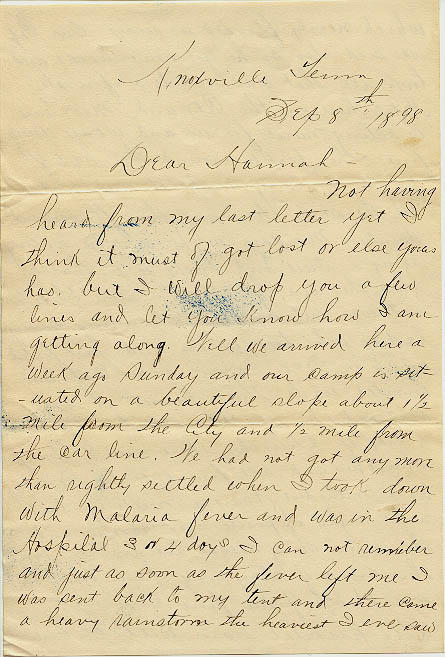 Knoxville Tenn
Sep 8th, 1898
Dear Hannah -
Not having
heard from my last letter yet I
think it must of got lost or else yours
has. but I will drop you a few
lines and let you know how I am
getting along. Well we arrived here a
week ago Sunday and our camp is sit
-uated on a beautiful slope about 1½
mile from the City and ½ mile from
the car line. We had not got any more
than rightly settled when I took down
with Malaria fever and was in the
Hospital 3 or 4 days I can not remember
and just as soon as the fever left me I
was sent back to my tent and there came
a heavy rainstorm the heaviest I ever saw